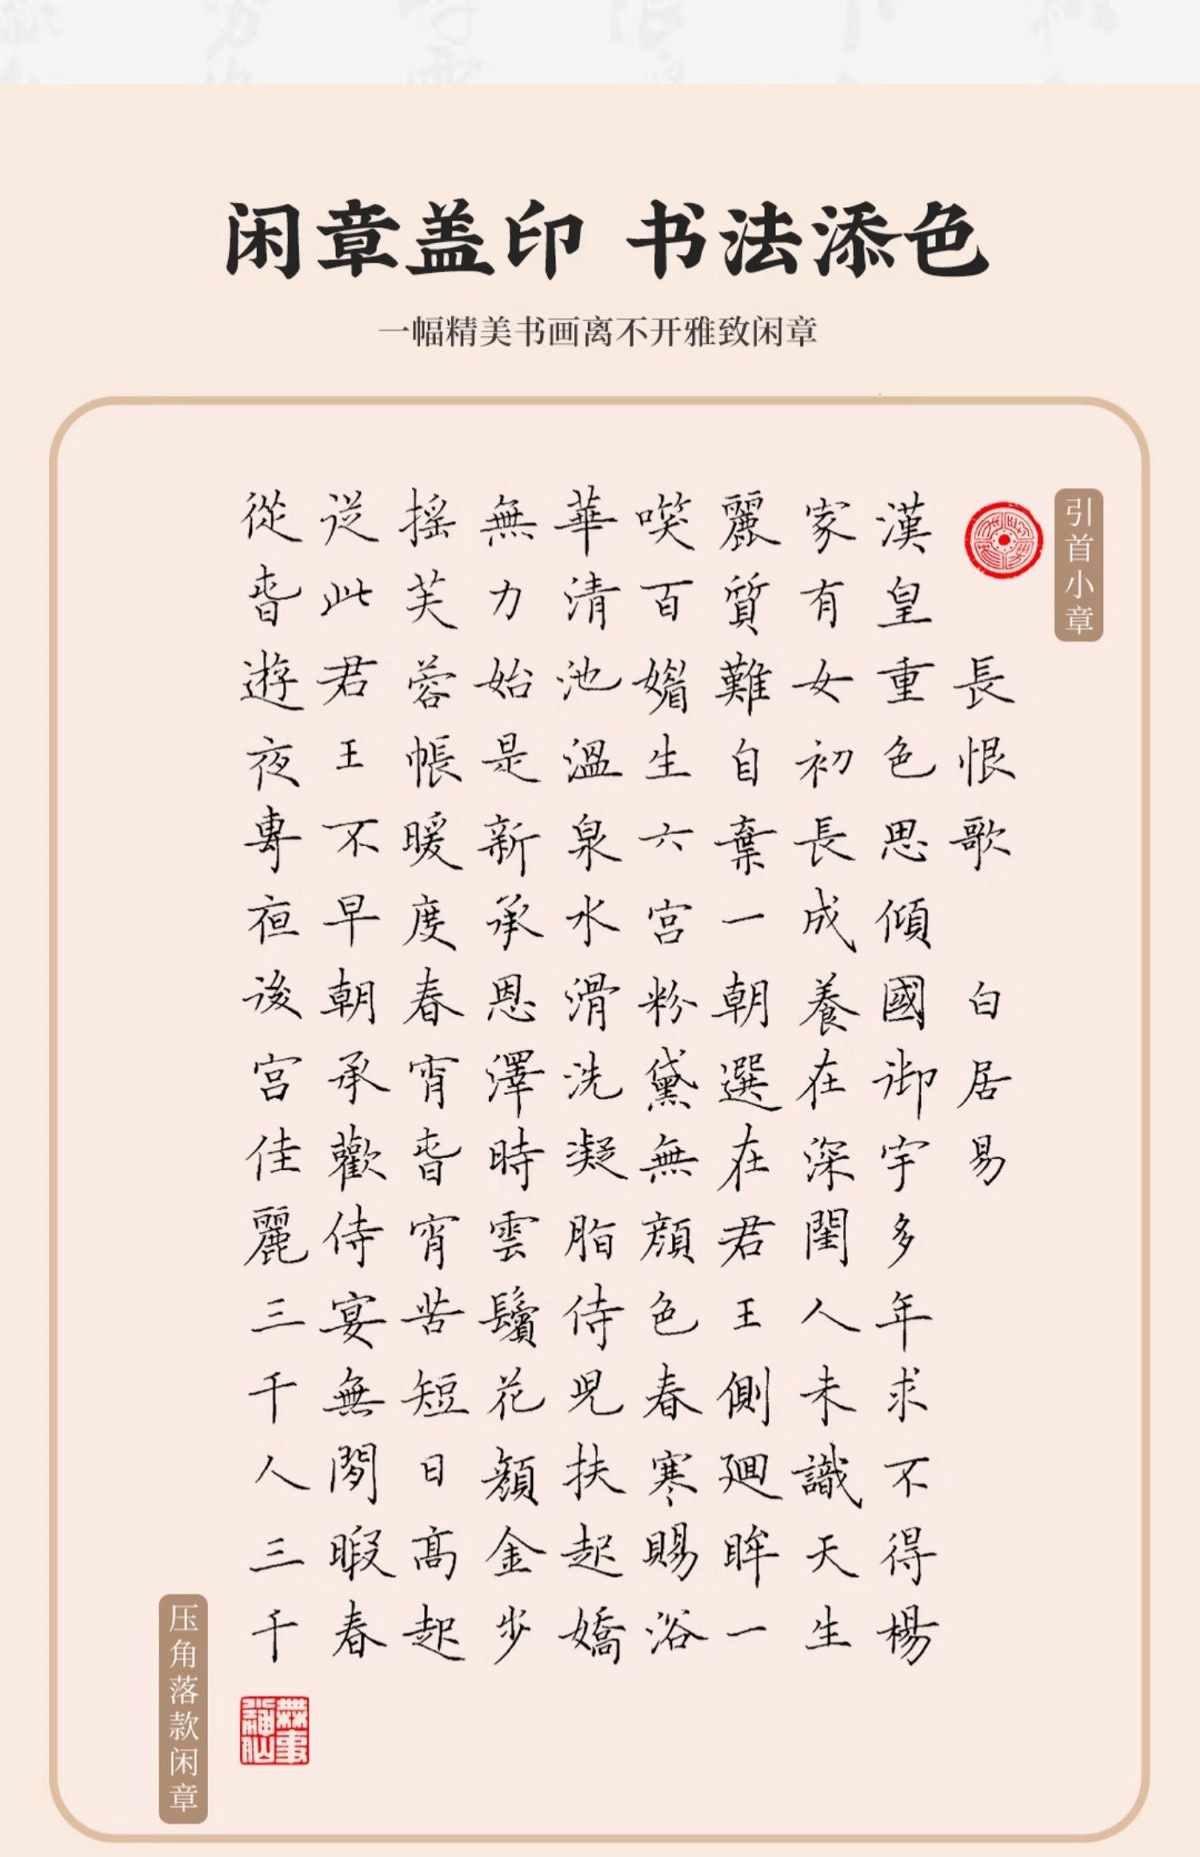 闲章盖印 书法添色
一幅精美书画离不开雅致闲章
引首小章
長恨歌 白居易
漢皇重色思傾國御宇多年求不得楊
家有女初長成養在深閨人未識天生
麗質難自棄一朝選在君王側迴眸一
唉百媚生六宮粉黛無顏色春寒賜浴
華清池溫泉水滑洗凝脂侍児扶起嬌
無力始是新承恩澤時雲鬢花顏金步
搖芙蓉帳暖度春宵春宵苦短日高起
從此君王不早朝承歡侍宴無閑暇春
從春遊夜專夜後宮佳麗三千人三千
压角落款闲章
無事神仙